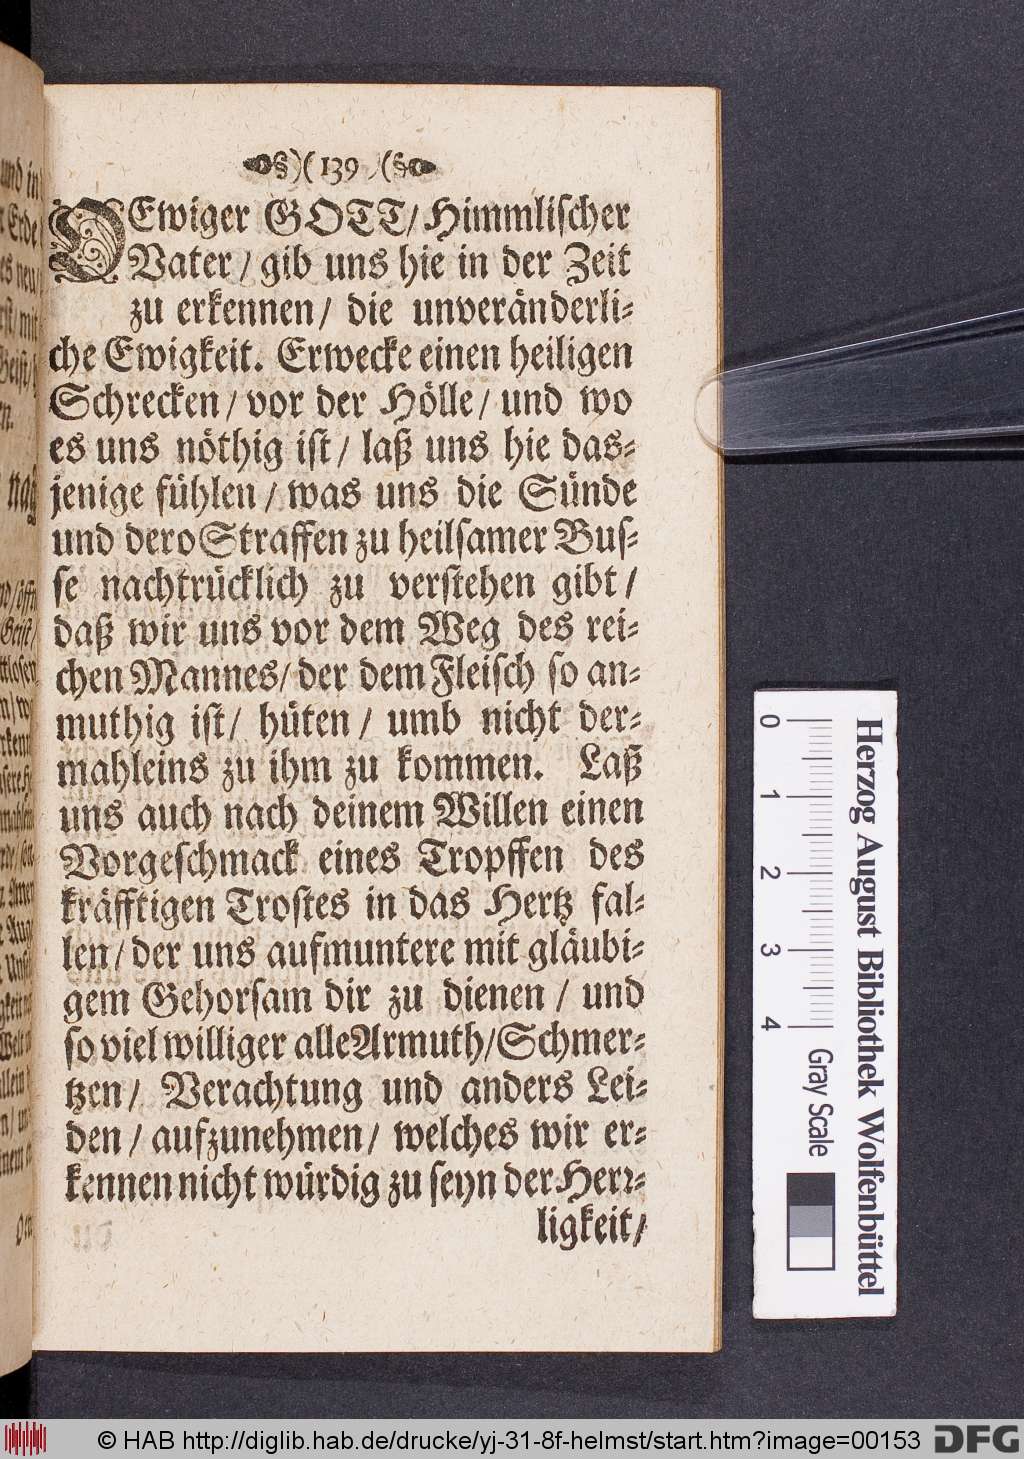 §)( 139 )(§
OEwiger GOTT/ Himmlischer
Vater/ gib uns hie in der Zeit
zu erkennen/ die unveränderli-
che Ewigkeit. Erwecke einen heiligen
Schrecken/ vor der Hölle/ und wo
es uns nöthig ist/ laß uns hie das-
jenige fühlen/ was uns die Sünde
und dero Straffen zu heilsamer Bus-
se nachtrücklich zu verstehen gibt/
daß wir uns vor dem Weg des rei-
chen Mannes/ der dem Fleisch so an-
muthig ist/ hüten/ umb nicht der-
mahleins zu ihm zu kommen. Laß
uns auch nach deinem Willen einen
Vorgeschmack eines Tropffen des
kräfftigen Trostes in das Hertz fal-
len/ der uns aufmuntere mit gläubi-
gem Gehorsam dir zu dienen/ und
so viel williger alle Armuth/ Schmer-
tzen/ Verachtung und anders Lei-
den/ aufzunehmen/ welches wir er-
kennen nicht würdig zu seyn der Herr-
ligkeit/
0 1 2 3 4
Gray Scale
Herzog August Bibliothek Wolfenbüttel
© HAB http://diglib.hab.de/drucke/yj-31-8f-helmst/start.htm?image=00153
DFG